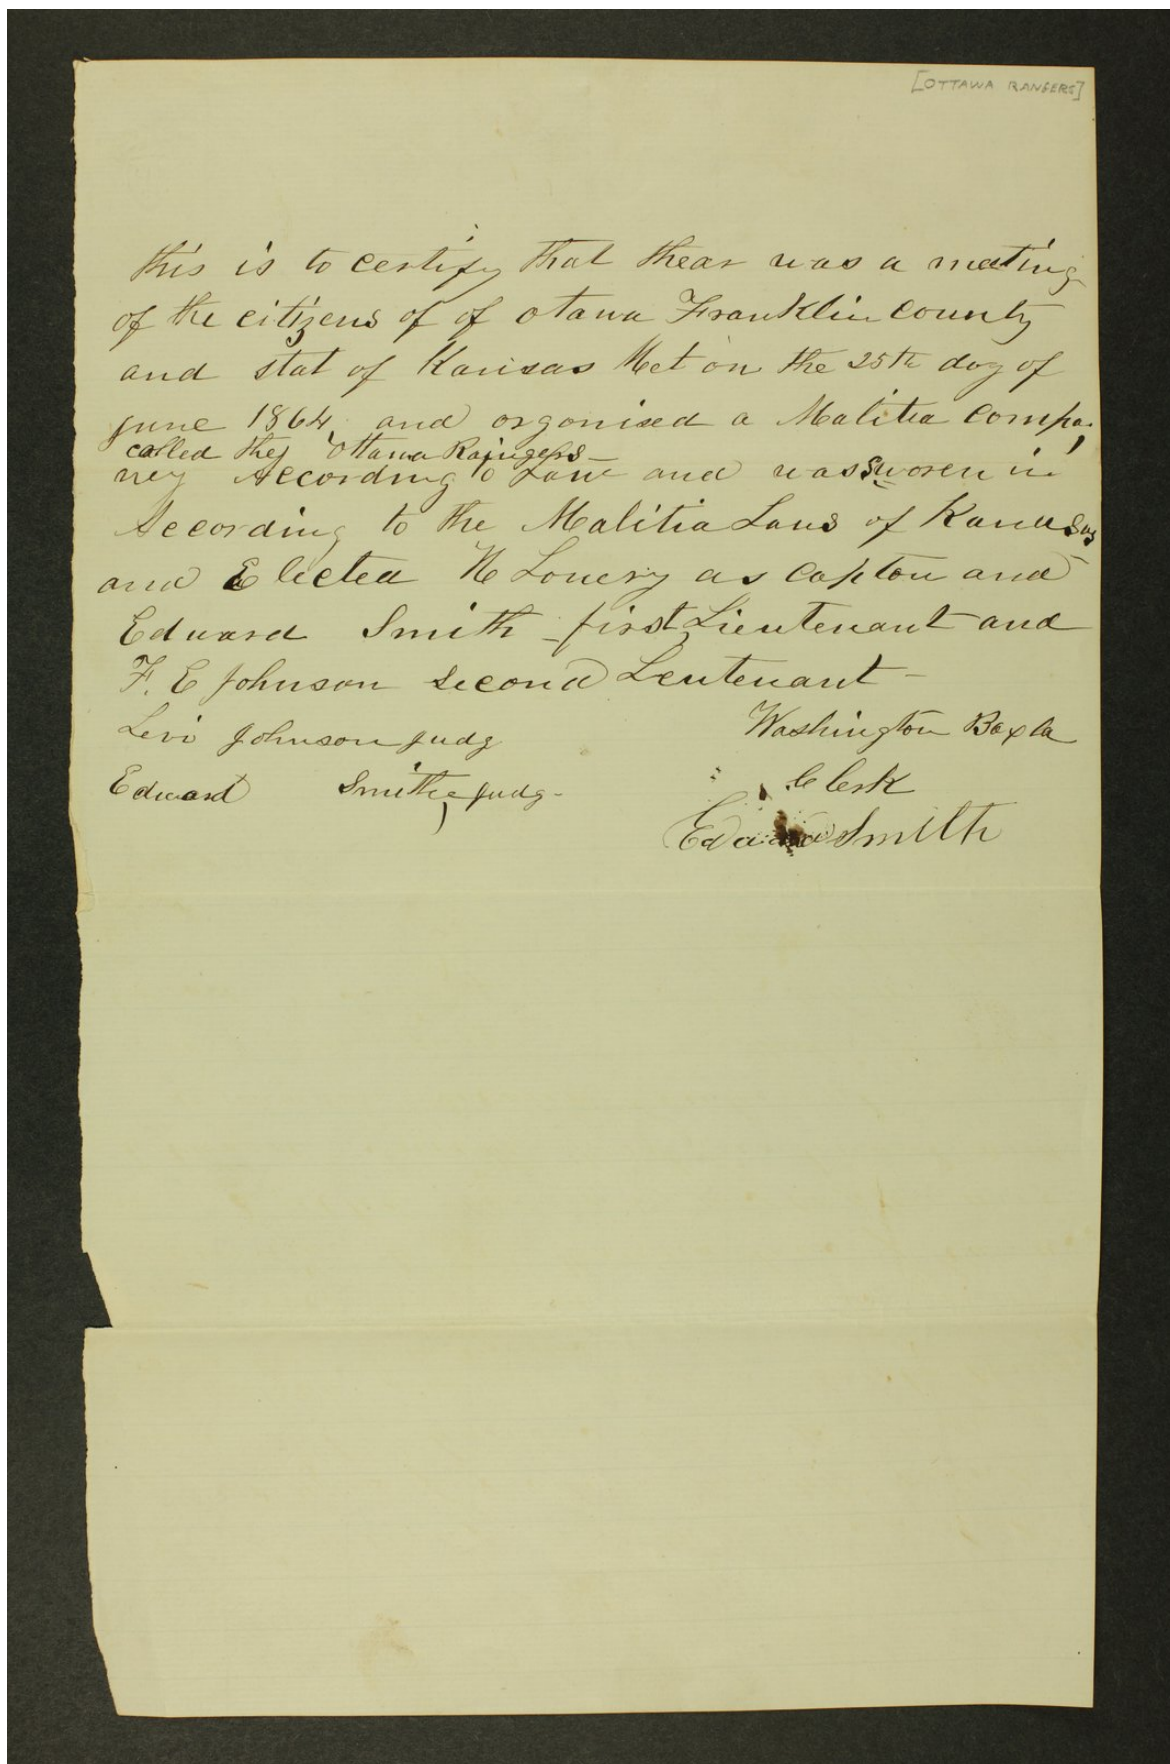 [OTTAWA RANGERS]
this is to certify that thear was a meeting
of the citizens of of otawa Franklin county
and stat of Kansas Met on the 25th day of
June 1864, and organised a Malitia compa-
called they Ottawa Raingers
ney According to Law and was sworen in
According to the Malitia Laws of Kansas
and Elected Lowery as capton and
Edward Smith first Lieutenant and
F. E Johnson second Leutenant
Levi Johnson judg
Washington
Edward Smith judg
Clerk
Edward Smith